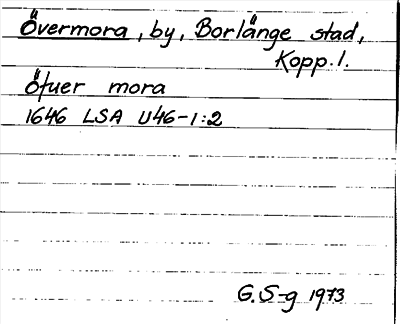 Övermora, by, Borlänge stad,
Kopp. l.
öfuer mora
1646 LSA U46-1:2
G. S-g 1973